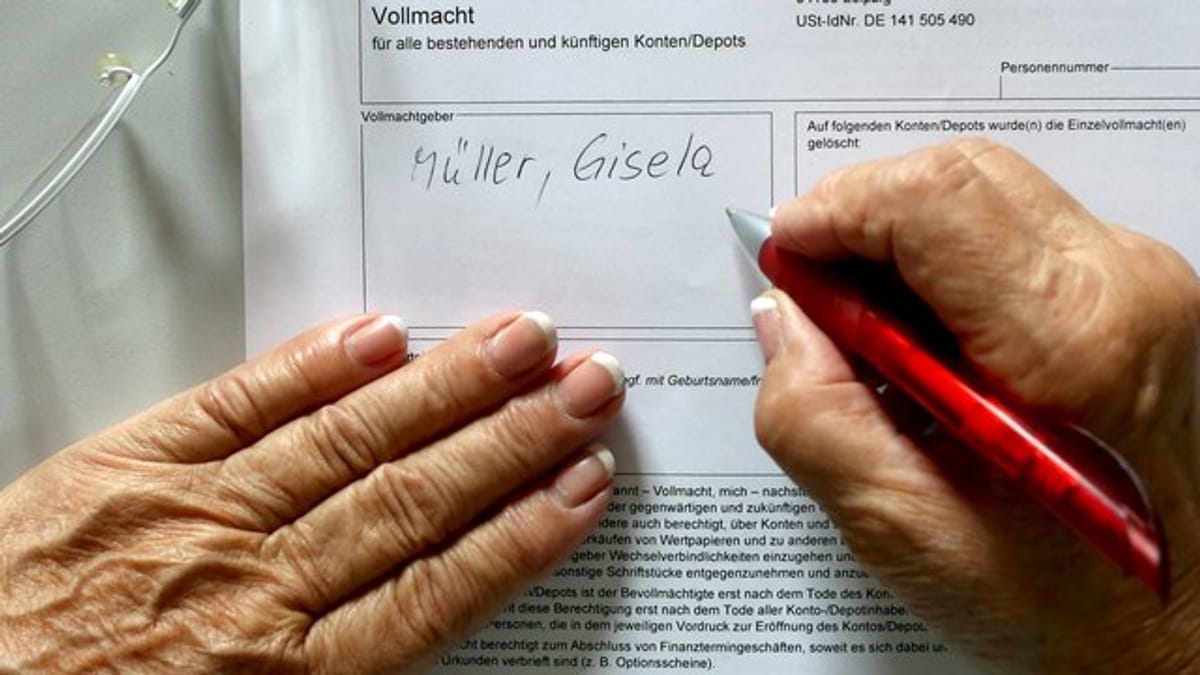 Vollmacht
für alle bestehenden und künftigen Konten/Depots
USt-IdNr. DE 141 505 490
Personennummer
Vollmachtgeber
Müller, Gisela
Auf folgenden Konten/Depots wurde(n) die Einzelvollmacht(en)
gelöscht:
mit Geburtsname/
– Vollmacht, mich –
der gegenwärtigen und zukünftigen
auch berechtigt, über Konten und
von Wertpapieren und zu anderen
Wechselverbindlichkeiten einzugehen
sonstige Schriftstücke entgegenzunehmen und
/Depots ist der Bevollmächtigte erst nach dem Tode des
diese Berechtigung erst nach dem Tode aller Konto-/Depotinhaber
die in dem jeweiligen Vordruck zur Eröffnung des Kontos/
berechtigt zum Abschluss von Finanztermingeschäften, soweit es sich dabei
Urkunden verbrieft sind (z. B. Optionsscheine).